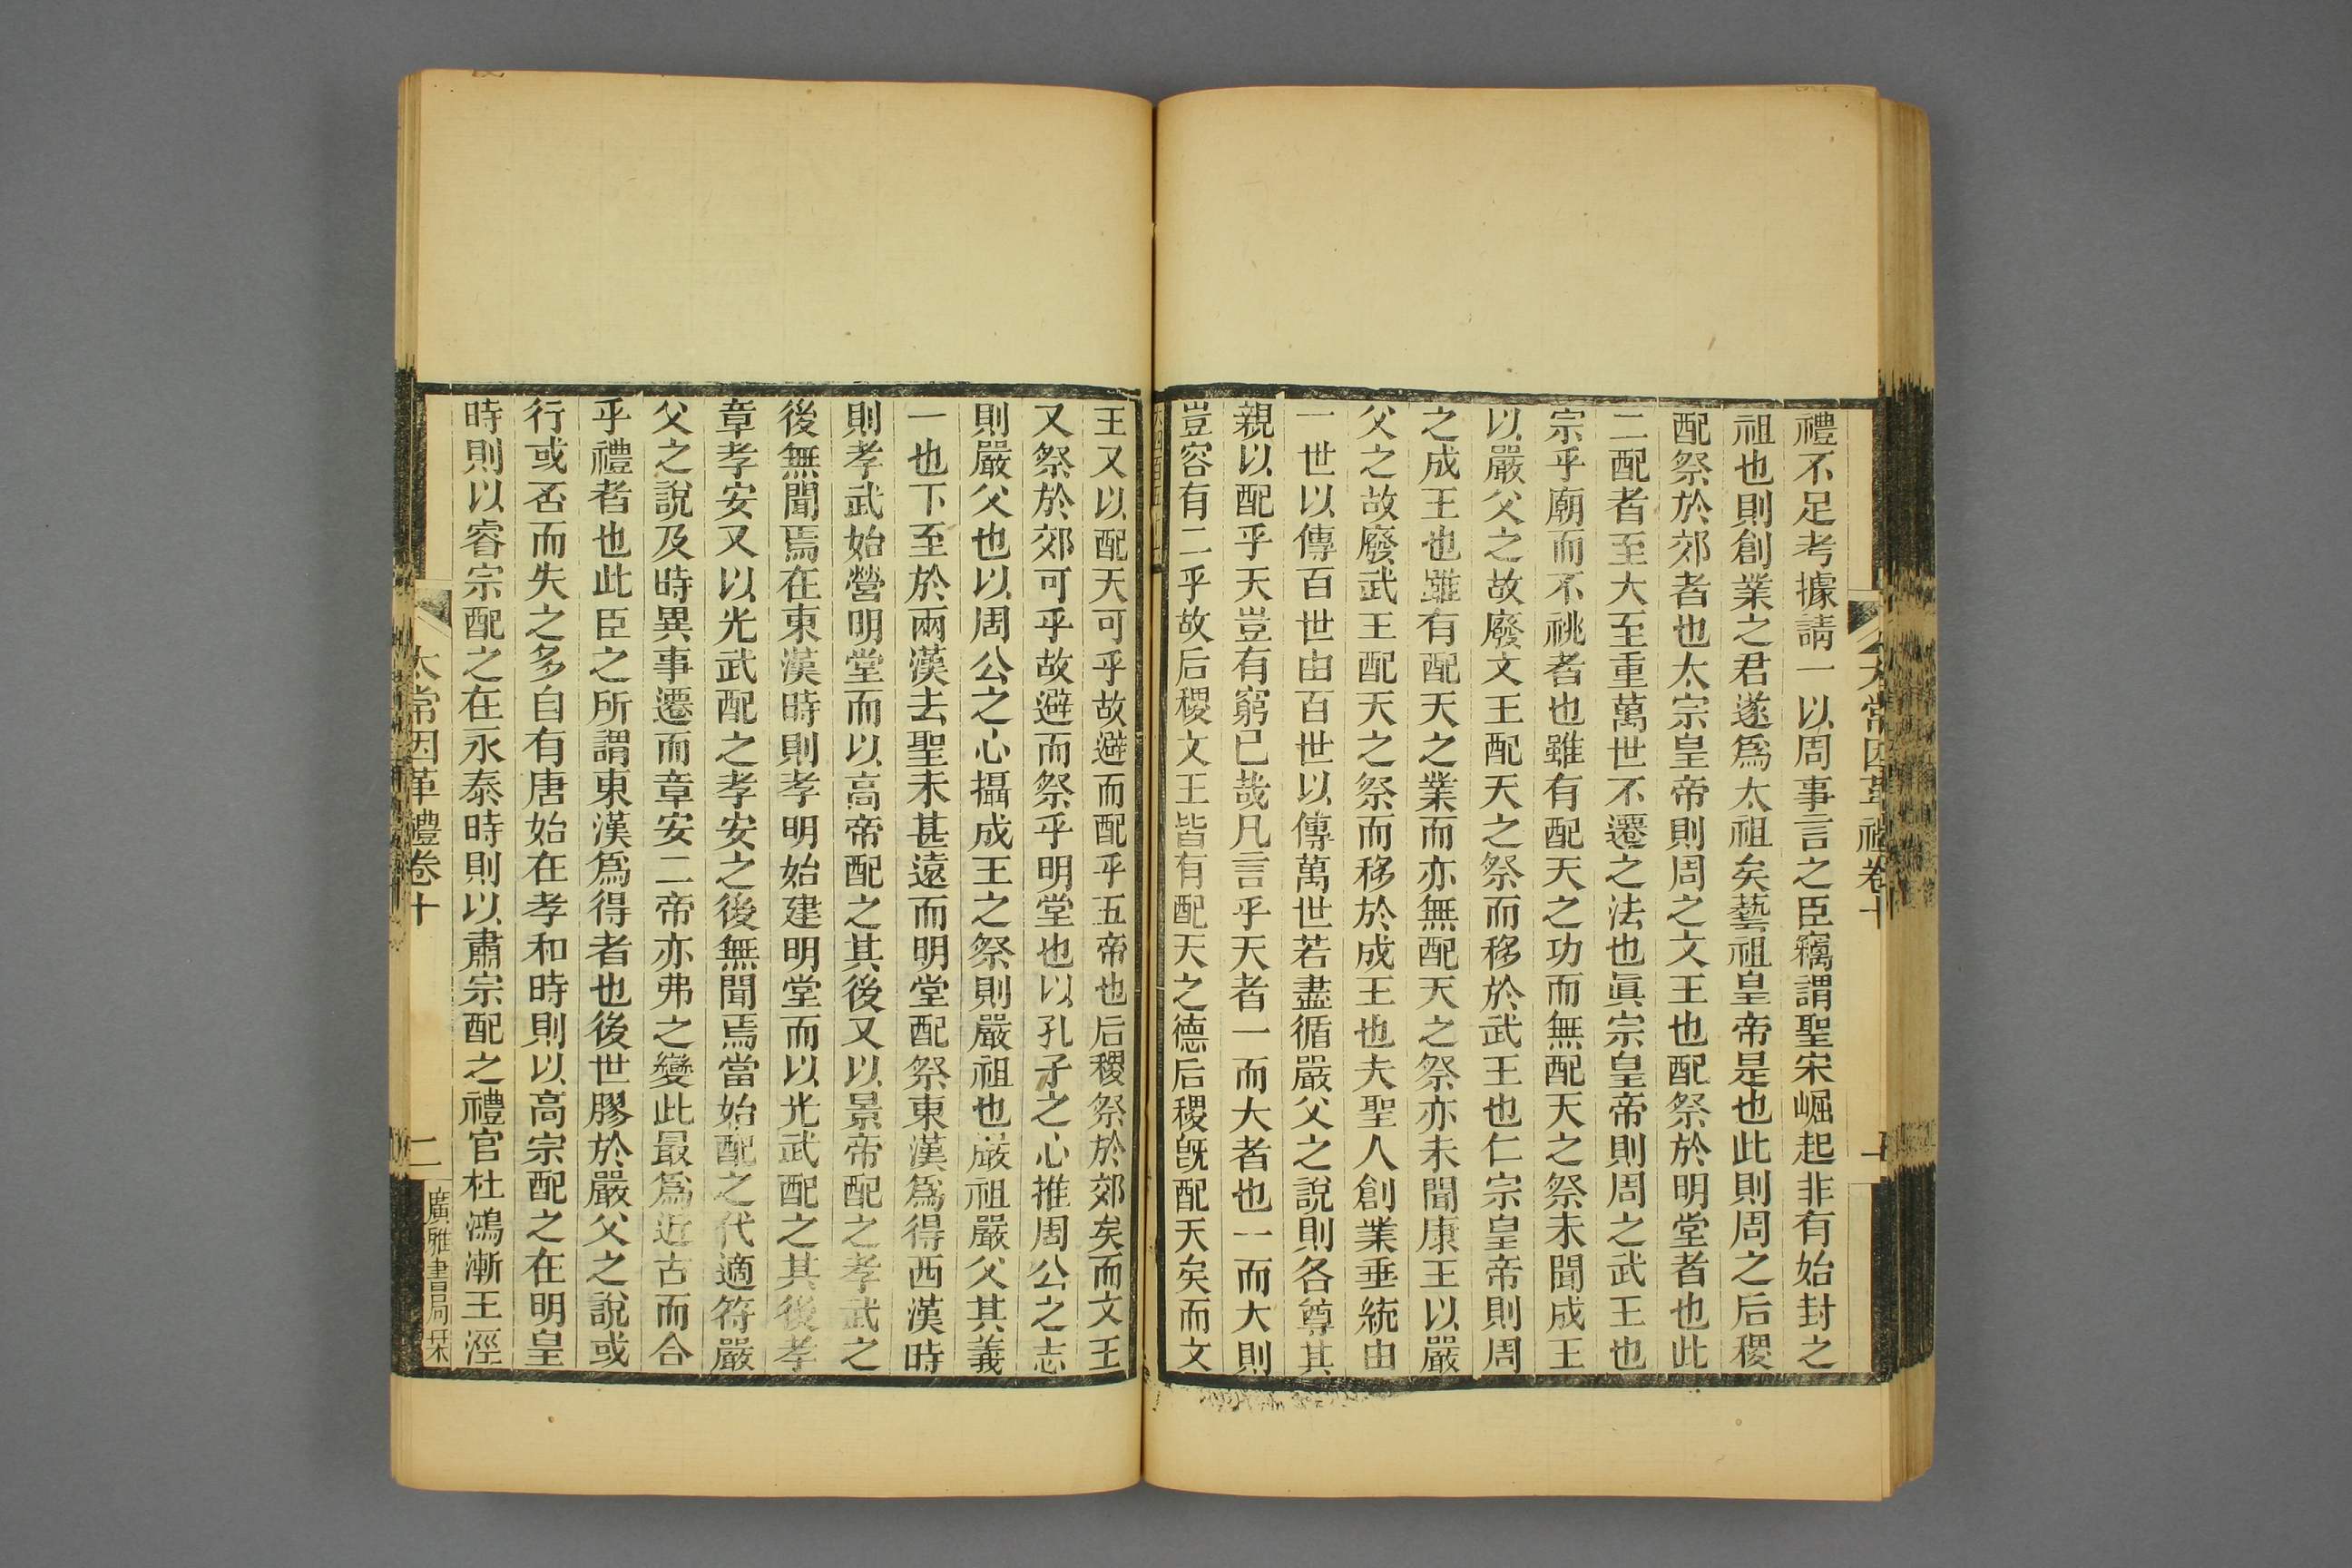 太常因革禮卷十
禮不足考據請一以周事言之臣竊謂聖宋崛起非有始封之
祖也則創業之君遂爲太祖矣藝祖皇帝是也此則周之后稷
配祭於郊者也太宗皇帝則周之文王也配祭於明堂者也此
二配者至大至重萬世不遷之法也眞宗皇帝則周之武王也
宗乎廟而不祧者也雖有配天之功而無配天之祭未聞成王
以嚴父之故廢文王配天之祭而移於武王也仁宗皇帝則周
之成王也雖有配天之業而亦無配天之祭亦未聞康王以嚴
父之故廢武王配天之祭而移於成王也夫聖人創業垂統由
一世以傳百世由百世以傳萬世若盡循嚴父之說則各尊其
親以配乎天豈有窮已哉凡言乎天者一而大者也一而大則
豈容有二乎故后稷文王皆有配天之德后稷旣配天矣而文
王又以配天可乎故避而配乎五帝也后稷祭於郊矣而文王
又祭於郊可乎故避而祭乎明堂也以孔子之心推周公之志
則嚴父也以周公之心攝成王之祭則嚴祖也嚴祖嚴父其義
一也下至於兩漢去聖未甚遠而明堂配祭東漢爲得西漢時
則孝武始營明堂而以高帝配之其後又以景帝配之孝武之
後無聞焉在東漢時則孝明始建明堂而以光武配之其後孝
章孝安又以光武配之孝安之後無聞焉當始配之代適符嚴
父之說及時異事遷而章安二帝亦弗之變此最爲近古而合
乎禮者也此臣之所謂東漢爲得者也後世膠於嚴父之說或
行或否而失之多自有唐始在孝和時則以高宗配之在明皇
時則以睿宗配之在永泰時則以肅宗配之禮官杜鴻漸王涇
太常因革禮卷十
二
廣雅書局栞